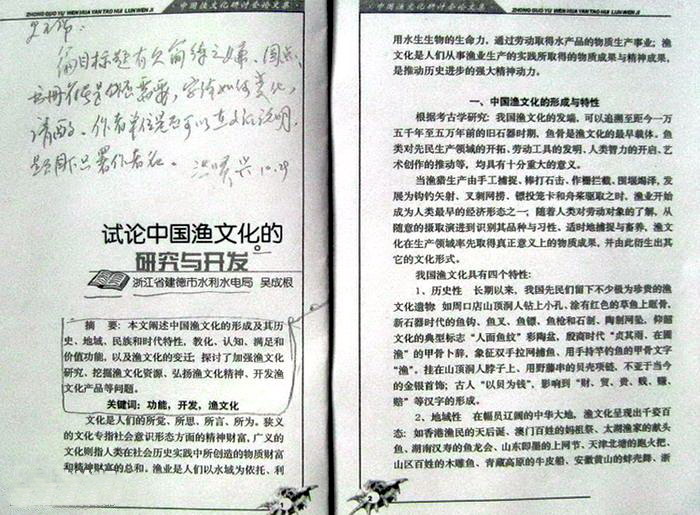 中国渔文化研讨会论文集
ZHONG GUO YU WEN HUA YAN TAO HUI LUN WEN JI
试论中国渔文化的
研究与开发
浙江省建德市水利水电局 吴成根
摘 要：本文阐述中国渔文化的形成及其历
史、地域、民族和时代特性，教化、认知、满足和
价值功能，以及渔文化的变迁；探讨了加强渔文化
研究、挖掘渔文化资源、弘扬渔文化精神、开发渔
文化产品等问题。
关键词：功能，开发，渔文化
文化是人们的所觉、所思、所言、所为。狭义
的文化专指社会意识形态方面的精神财富，广义的
文化则指人类在社会历史实践中所创造的物质财富
和精神财富的总和。渔业是人们以水域为依托、利
中国渔文化研讨会论文集
ZHONG GUO YU WEN HUA YAN TAO HUI LUN WEN JI
用水生生物的生命力，通过劳动取得水产品的物质生产事业；渔
文化是人们从事渔业生产的实践所取得的物质成果与精神成果，
是推动历史进步的强大精神动力。
一、中国渔文化的形成与特性
根据考古学研究：我国渔文化的发端，可以追溯至距今一万
五千年至五万年前的旧石器时期，鱼骨是渔文化的最早载体。鱼
类对先民生产领域的开拓、劳动工具的发明、人类智力的开启、艺
术创作的推动等，均具有十分重大的意义。
当渔猎生产由手工捕捉、棒打石击、作栅拦截、围堰竭泽，发
展为钩钓矢射、叉刺网捞、镖投笼卡和舟桨驱取之时，渔业开始
成为人类最早的经济形态之一；随着人类对劳动对象的了解，从
随意的摄取演进到识别其品种与习性、适时地捕捉与畜养，渔文
化在生产领域率先取得真正意义上的物质成果，并由此衍生出其
它的文化形式。
我国渔文化具有四个特性：
1、历史性 长期以来，我国先民们留下不少极为珍贵的渔
文化遗物 如周口店山顶洞人钻上小孔、涂有红色的草鱼上眶骨、
新石器时代的鱼钩、鱼叉、鱼镖、鱼枪和石制、陶制网坠，仰韶
文化的典型标志“人面鱼纹”彩陶盆，殷商时代“贞其雨，在圃
渔”的甲骨卜辞，象征双手拉网捕鱼、用手持竿钓鱼的甲骨文字
“渔”。挂在山顶洞人脖子上、用野藤串的贝壳项链，不亚于当今
的金银首饰；古人“以贝为钱”，影响到“财、贸、贵、贱、赚、
赔”等汉字的形成。
2、地域性 在幅员辽阔的中华大地，渔文化呈现出千姿百
态：如香港渔民的天后诞、澳门百姓的妈祖祭、太湖渔家的献头
鱼、湖南汉寿的鱼龙会、山东即墨的上网节、天津北塘的跑火把、
山区百姓的木雕鱼、青藏高原的牛皮船、安徽黄山的蚌壳舞、浙
2